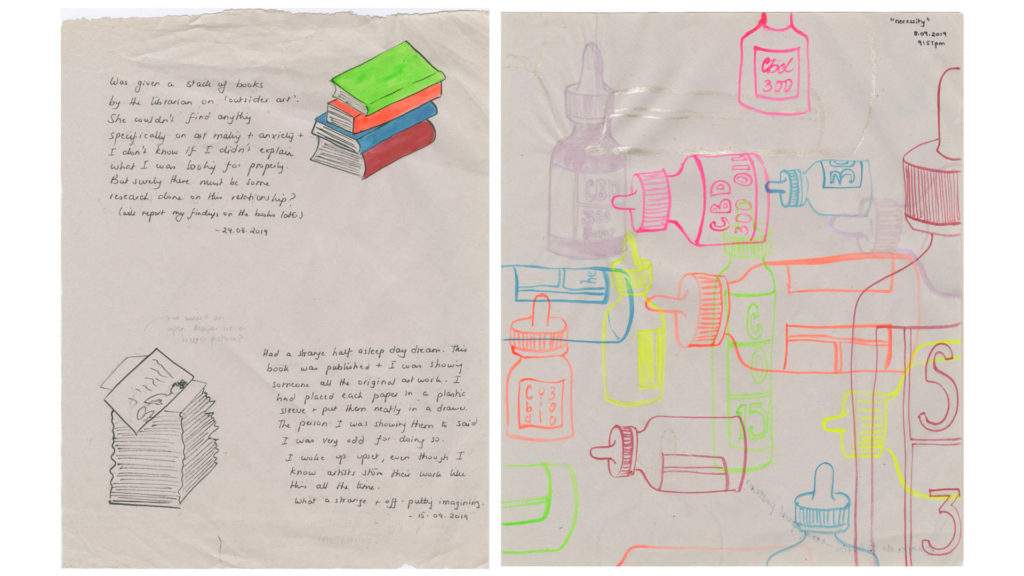 Was given a stack of books
by the librarian on 'outsider art'.
She couldn't find anything
specifically on art making + anxiety +
I don't know if I didn't explain
what I was looking for properly.
But surely there must be some
research done on this relationship?
(will report my findings on the books later)
- 29.08.2019
open drawer
Had a strange half asleep day dream. This
book was published + I was showing
someone all the original art work. I
had placed each paper in a plastic
sleeve + put them neatly in a drawer.
The person I was showing them to said
I was very odd for doing so.
I woke up upset, even though I
know artists store their work like
this all the time.
What a strange + off-putty imagining.
- 15.09.2019
"necessity"
8.09.2019
9:57pm
Cbd
300
CBD
CBD
300 OIL
30
Cbd
oil
300
C
15
S
3